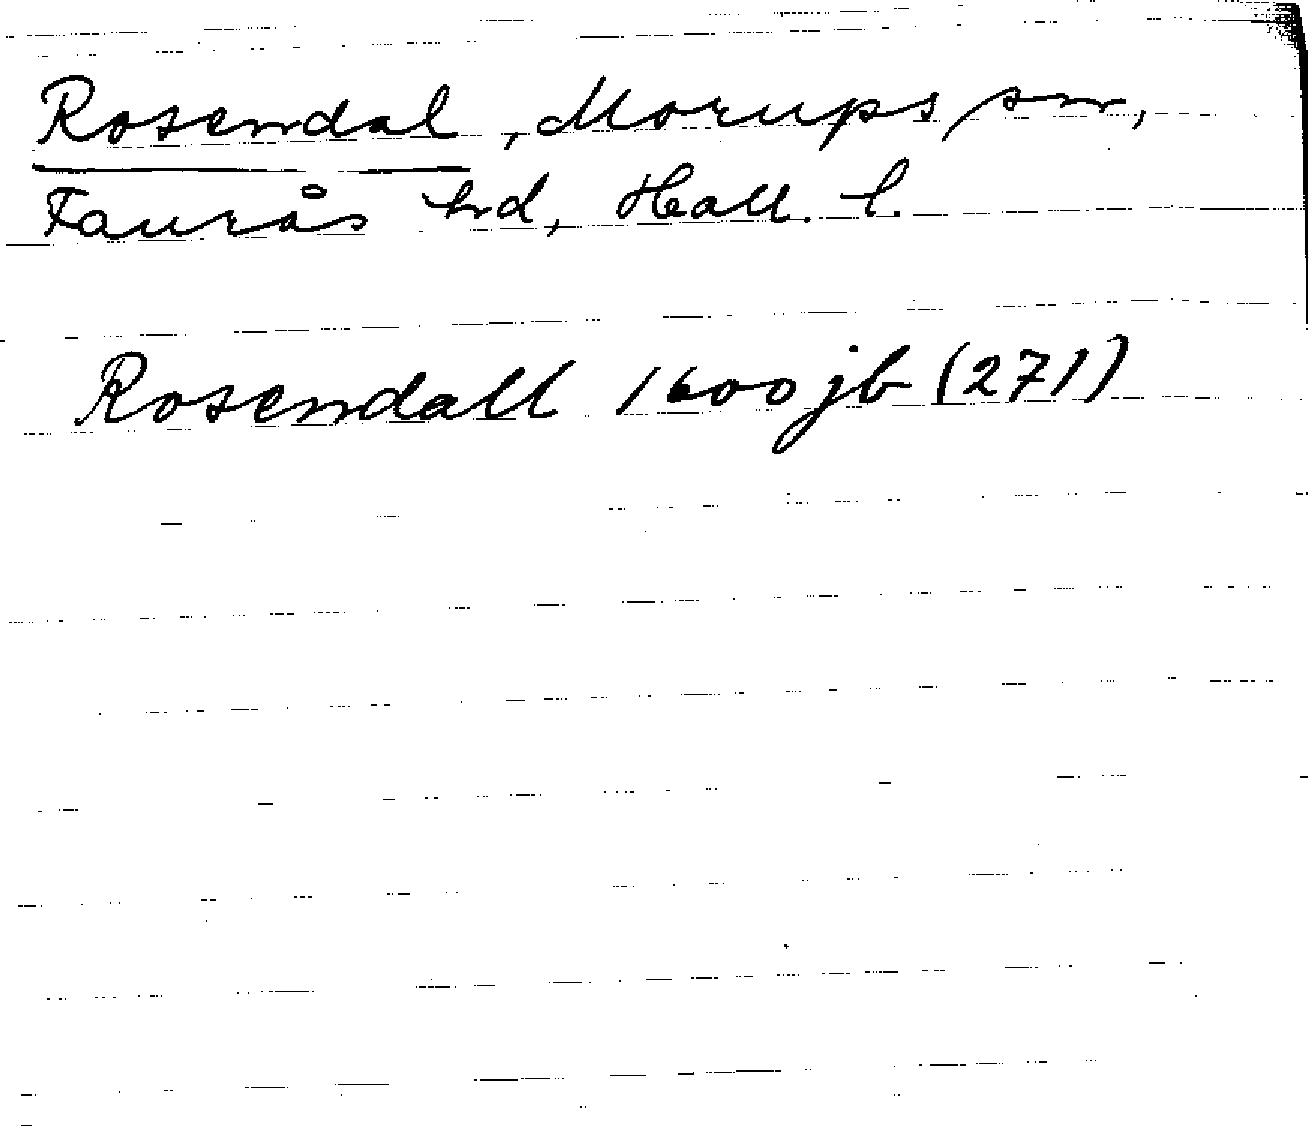 Rosendal, Morups sn,
Faurås hd, Hall. l.
Rosendall 1600 jb (271)